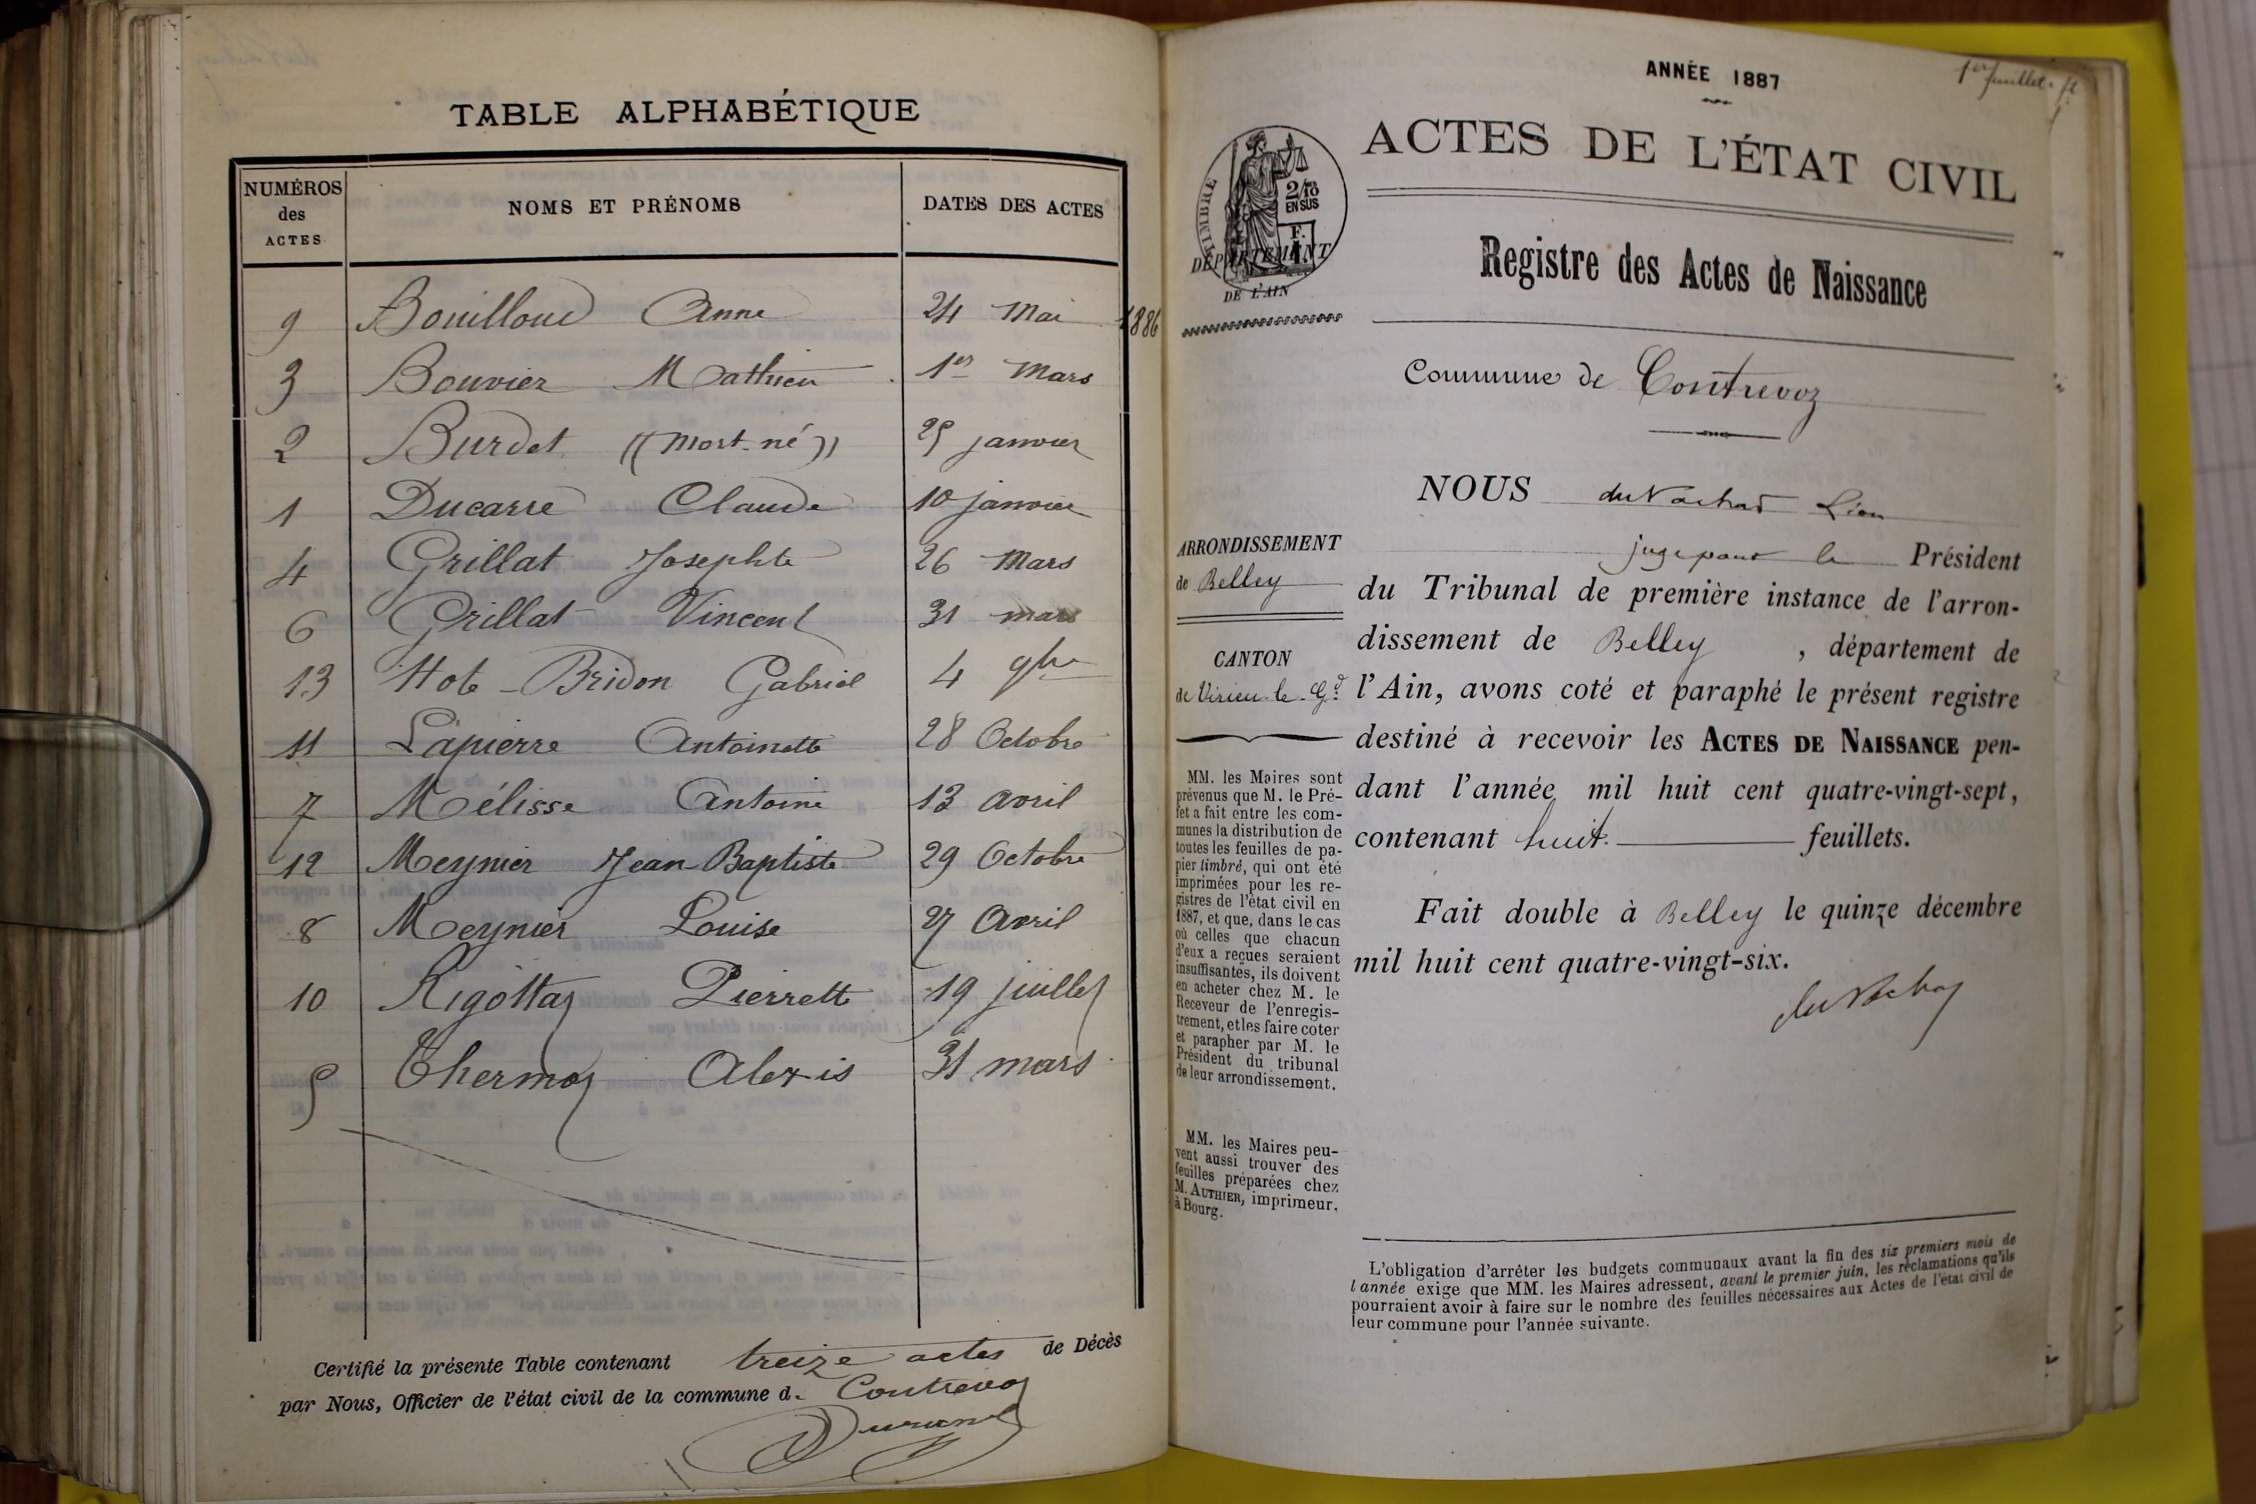 TABLE ALPHABÉTIQUE
NUMÉROS des ACTES NOMS ET PRÉNOMS DATES DES ACTES
9 Bouilloud Anne 24 Mai 1886
3 Bouvier Mathieu 1er Mars
2 Burdet ((Mort-né)) 25 janvier
1 Ducarre Claude 10 janvier
4 Grillat Josephte 26 Mars
6 Grillat Vincent 31 mars
13 Hot-Bridon Gabriel 4 9bre
11 Lapierre Antoinette 28 Octobre
7 Mélisse Antoine 13 avril
12 Meynier Jean-Baptiste 29 Octobre
8 Meynier Louise 27 Avril
10 Rigottaz Pierrette 19 juillet
5 Thermoz Alexis 31 mars
Certifié la présente Table contenant treize actes de Décès
par Nous, Officier de l'état civil de la commune d. Contrevoz
Durand
1er feuillet
ANNÉE 1887
ACTES DE L'ÉTAT CIVIL
TIMBRE
2/10
EN SUS
F.
DÉPARTEMENT
DE L'AIN
Registre des Actes de Naissance
Commune de Contrevoz
ARRONDISSEMENT
de Belley
CANTON
de Virieu-le-Gd
MM. les Maires sont
prévenus que M. le Pré-
fet a fait entre les com-
munes la distribution de
toutes les feuilles de pa-
pier timbré, qui ont été
imprimées pour les re-
gistres de l'état civil en
1887, et que, dans le cas
où celles que chacun
d'eux a reçues seraient
insuffisantes, ils doivent
en acheter chez M. le
Receveur de l'enregis-
trement, et les faire coter
et parapher par M. le
Président du tribunal
de leur arrondissement.
MM. les Maires peu-
vent aussi trouver des
feuilles préparées chez
M. AUTHIER, imprimeur,
à Bourg.
NOUS du Nachat Léon
juge pour le Président
du Tribunal de première instance de l'arron-
dissement de Belley , département de
l'Ain, avons coté et paraphé le présent registre
destiné à recevoir les ACTES DE NAISSANCE pen-
dant l'année mil huit cent quatre-vingt-sept,
contenant huit feuillets.
Fait double à Belley le quinze décembre
mil huit cent quatre-vingt-six.
L'obligation d'arrêter les budgets communaux avant la fin des six premiers mois de
l'année exige que MM. les Maires adressent, avant le premier juin, les réclamations qu'ils
pourraient avoir à faire sur le nombre des feuilles nécessaires aux Actes de l'état civil de
leur commune pour l'année suivante.